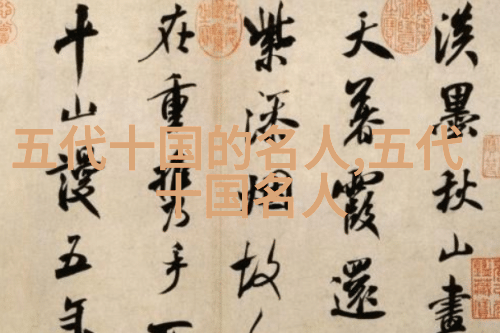 五代十国的名人,五代
十国名人
淡墨秋山畫
天暮霞還
紫添烟故
在重攜手
平山謾五年